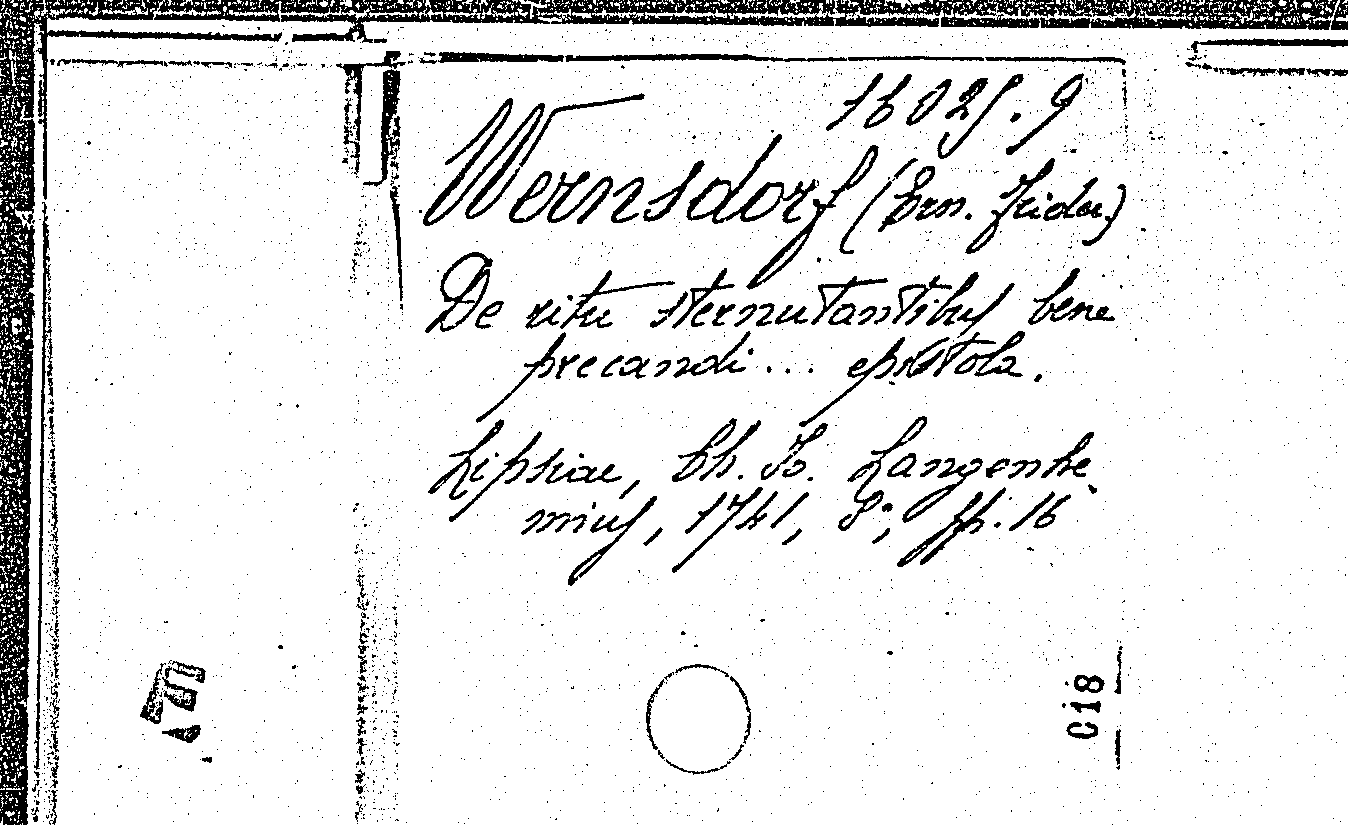 16025.9
Wernsdorf (Ern. Frider.)
De ritu sternutantibus bene
precandi... epistola.
Lipsiae, Ch. Io. Langenhe
mius, 1741, 8°, pp. 16
018